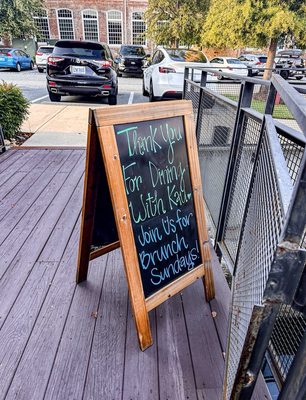 Thank You
For Dining
With Koi!
Join us for
Brunch
Sundays!